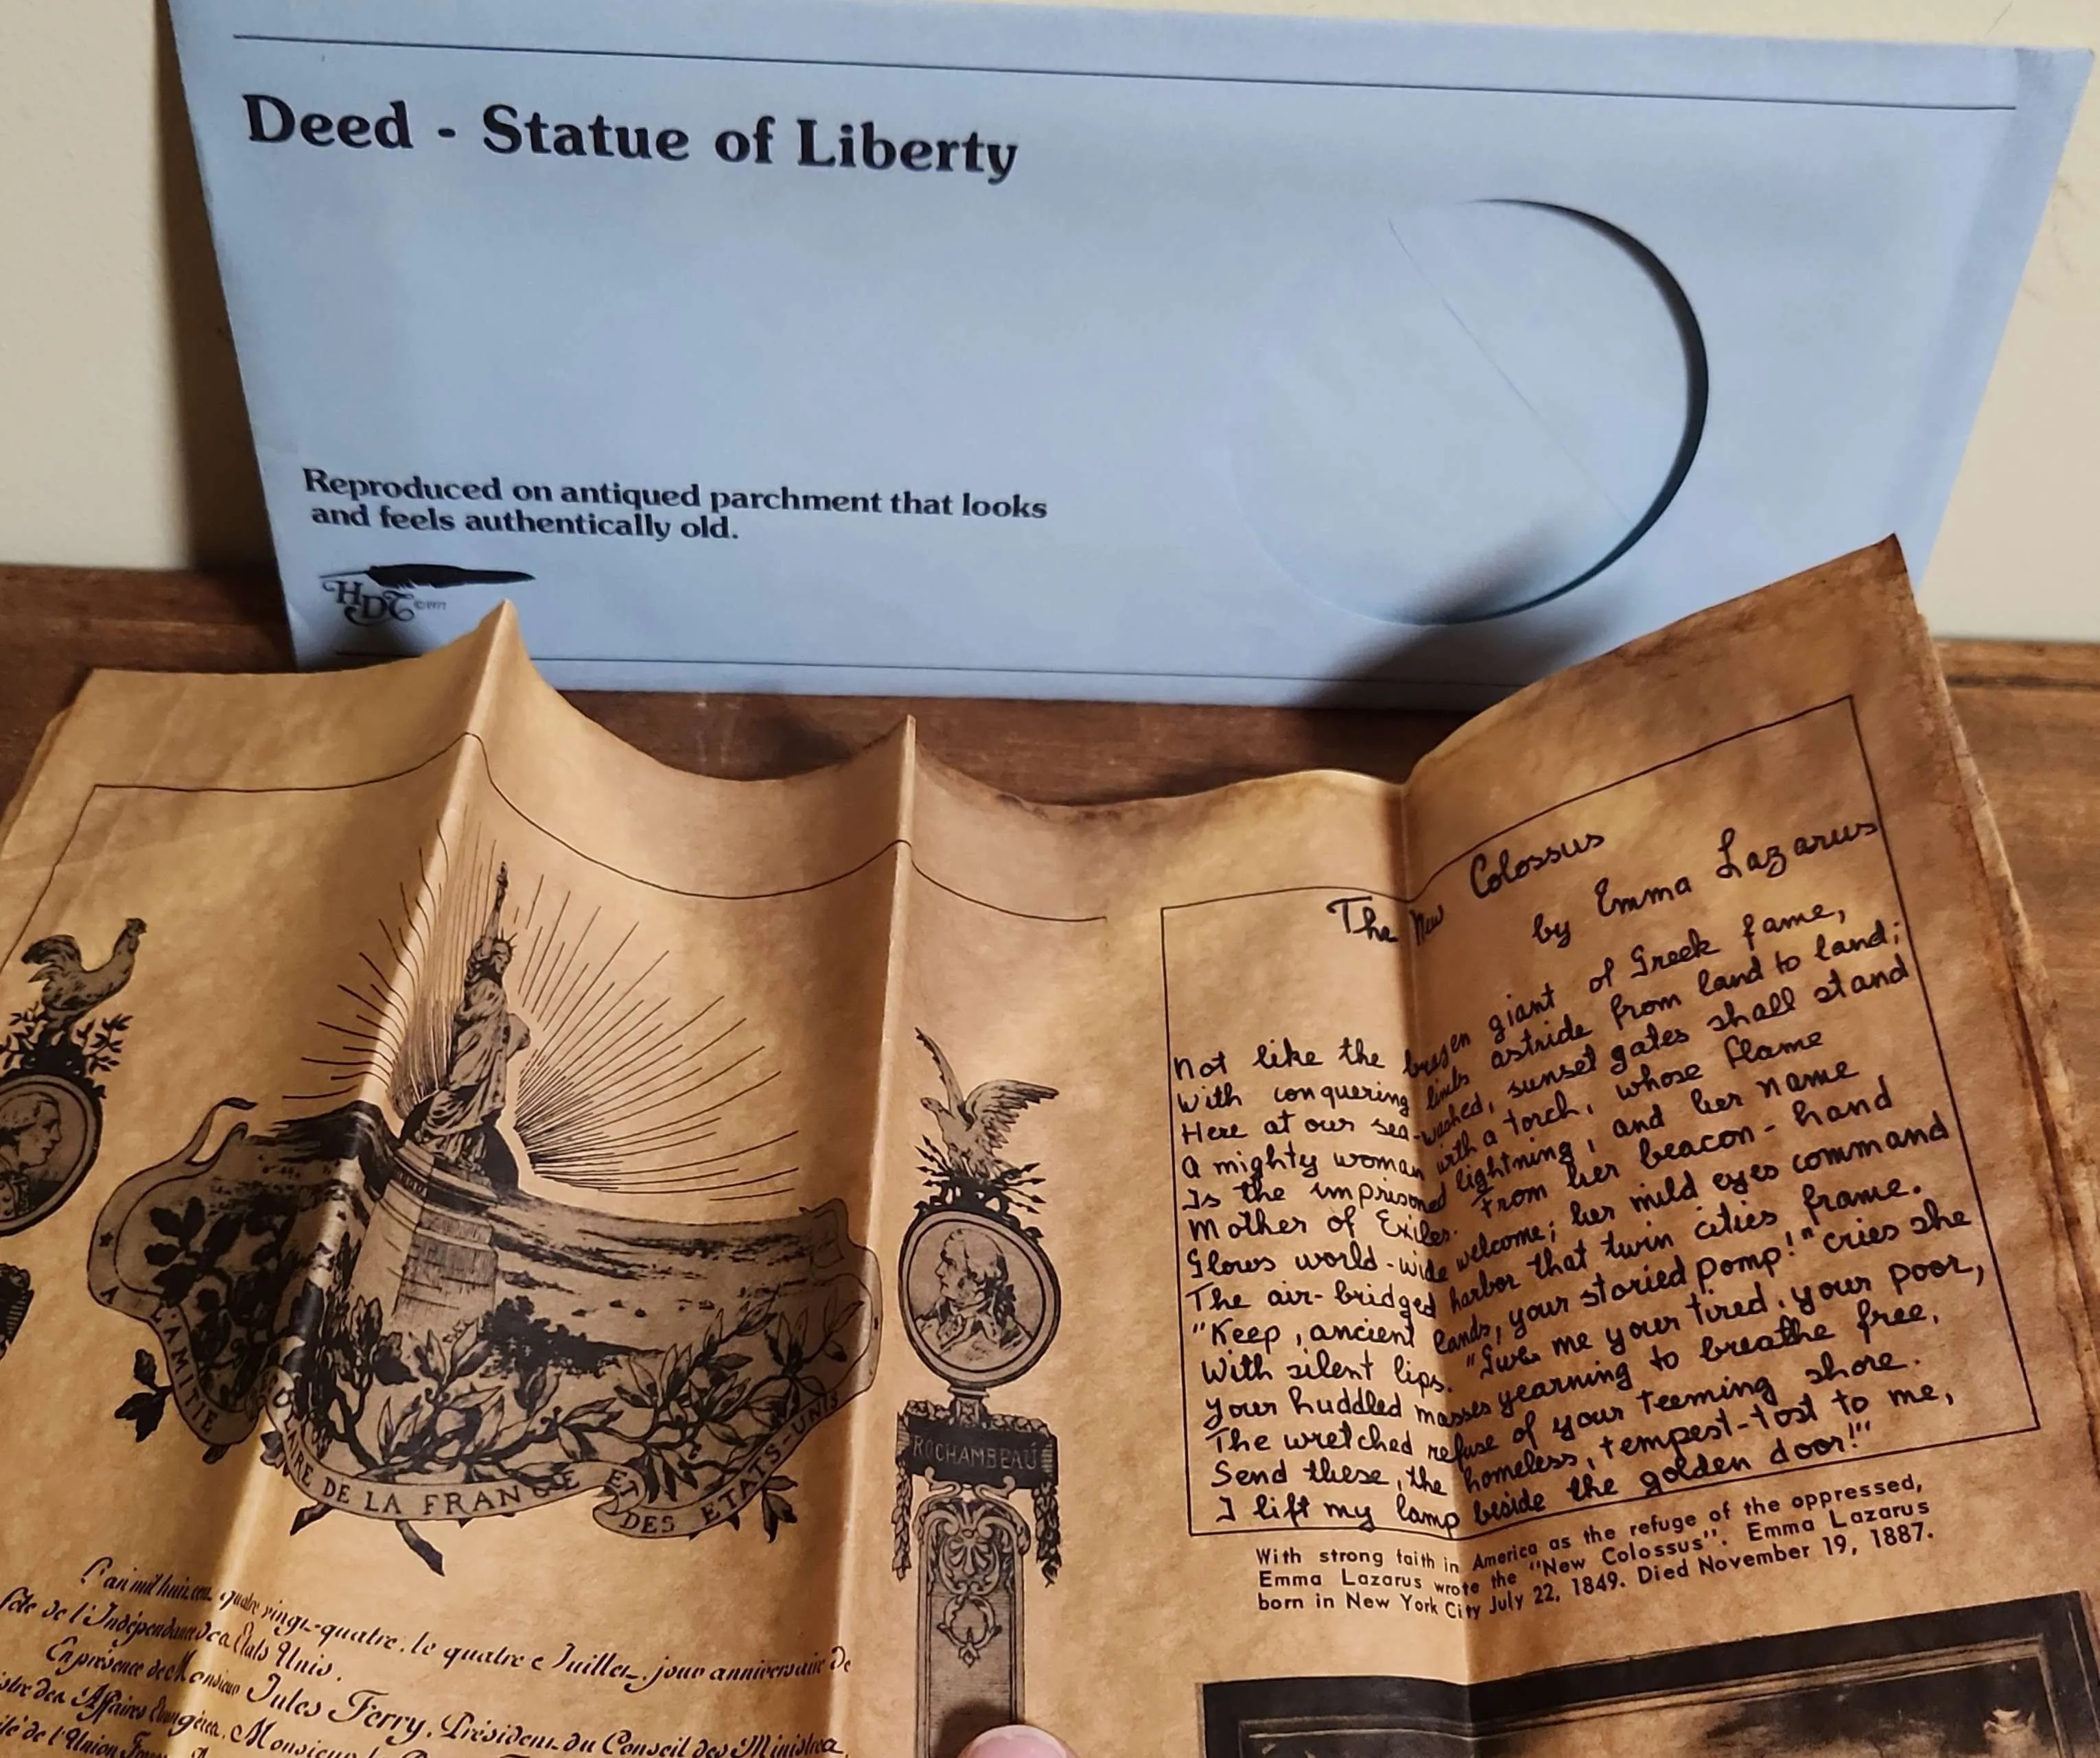 Deed - Statue of Liberty
Reproduced on antiqued parchment that looks
and feels authentically old.
HDT ©1977
A L'AMITIE
DE LA FRANCE ET
DES ETATS-UNIS
L'an mil huit cent quatre vingt-quatre, le quatre Juillet, jour anniversaire de
fête de l'Indépendance des Etats Unis.
En présence de Monsieur Jules Ferry, Président du Conseil des Ministres,
des Affaires Etrangères, Monsieur
de l'Union
ROCHAMBEAU
The New Colossus
by Emma Lazarus
Not like the brazen giant of Greek fame,
With conquering limbs astride from land to land;
Here at our sea-washed, sunset gates shall stand
A mighty woman with a torch, whose flame
Is the imprisoned lightning, and her name
Mother of Exiles. From her beacon-hand
Glows world-wide welcome; her mild eyes command
The air-bridged harbor that twin cities frame.
"Keep, ancient lands, your storied pomp!" cries she
With silent lips. "Give me your tired, your poor,
Your huddled masses yearning to breathe free,
The wretched refuse of your teeming shore.
Send these, the homeless, tempest-tost to me,
I lift my lamp beside the golden door!"
With strong faith in America as the refuge of the oppressed,
Emma Lazarus wrote the "New Colossus". Emma Lazarus
born in New York City July 22, 1849. Died November 19, 1887.